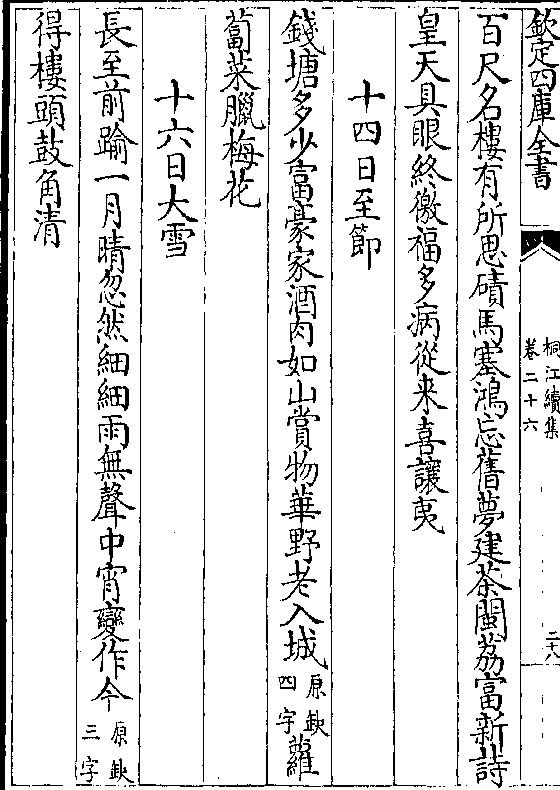 欽定四庫全書
桐江續集
卷二十六
二十八
百尺名樓有所思磧馬塞鴻忘舊夢建茶閩荔富新詩
皇天具眼終徼福多病從来喜讓夷
十四日至節
錢塘多少富豪家酒肉如山賞物華野老入城原缺四字蘿
蔔菜臘梅花
十六日大雪
長至前踰一月晴忽然細細雨無聲中宵變作今原缺三字
得樓頭鼓角清